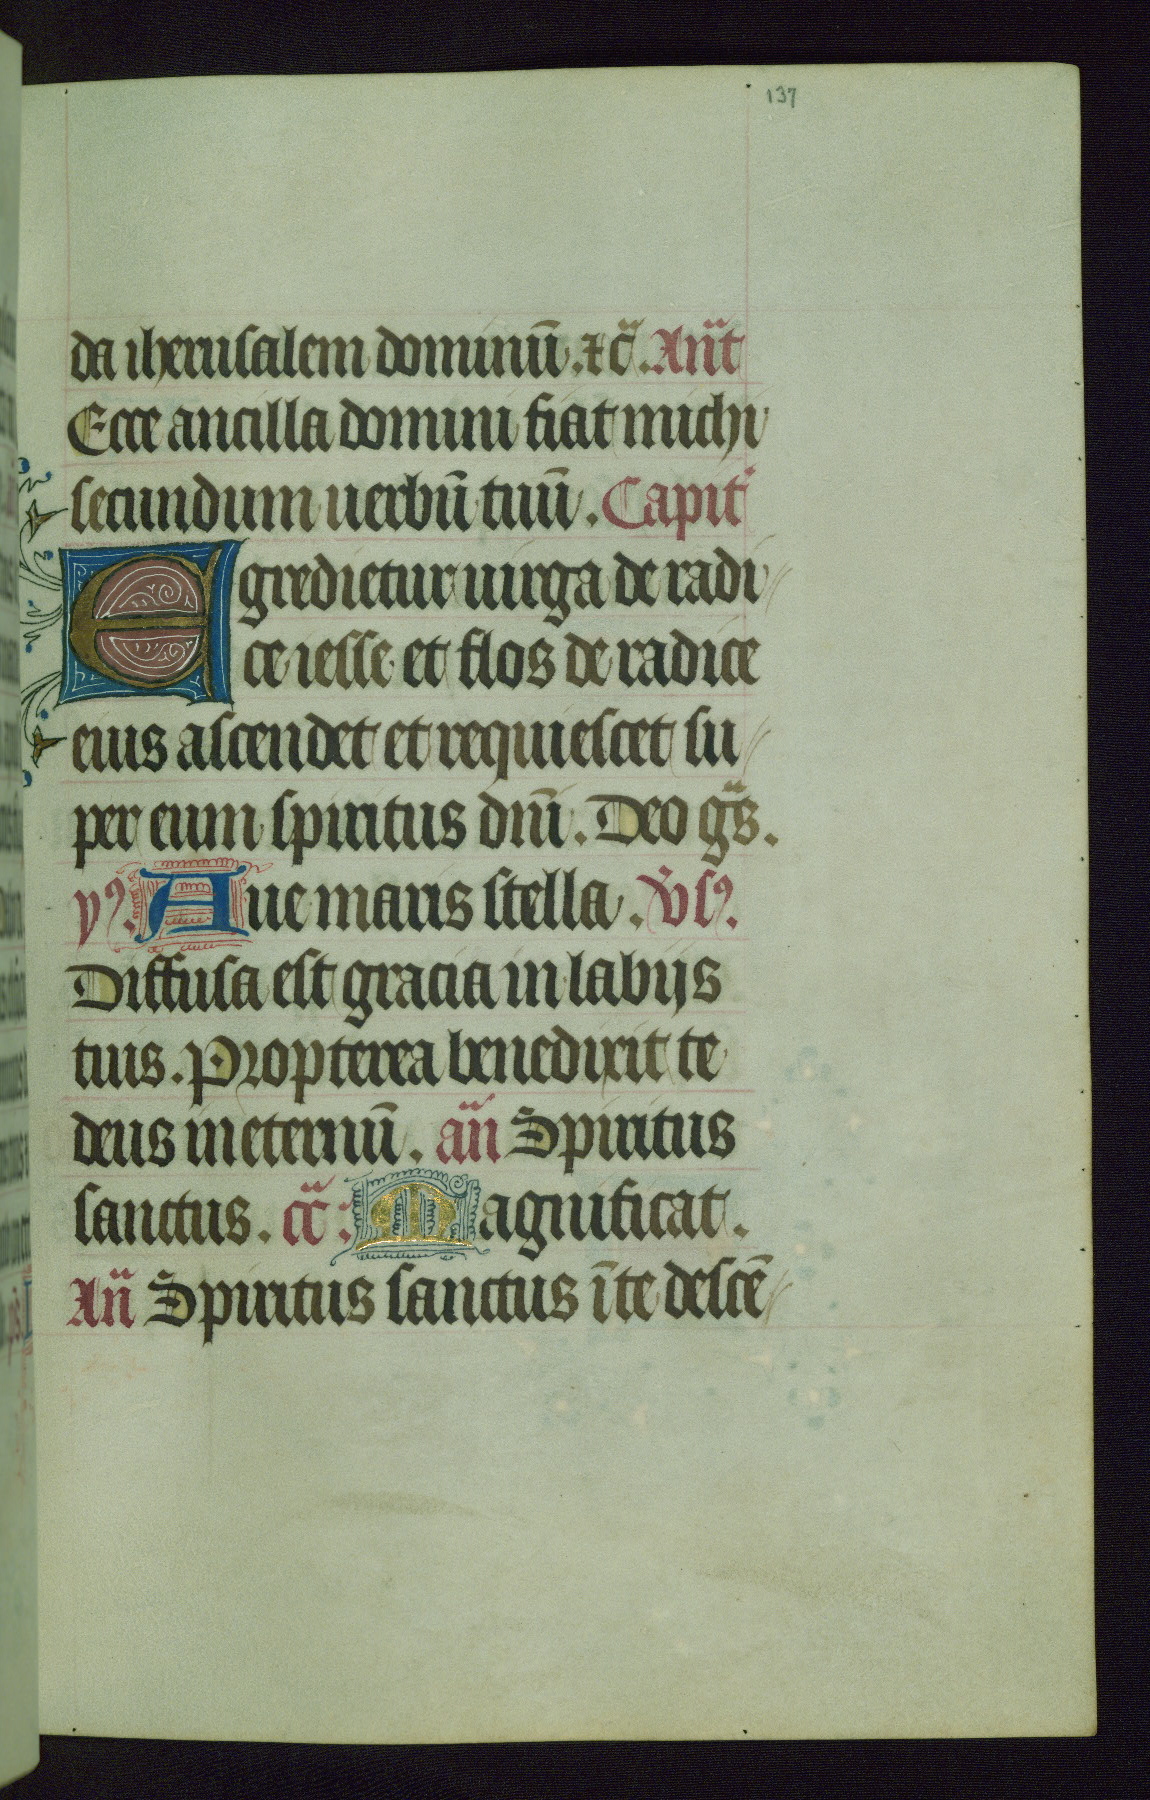 137
da iherusalem dominū. ⁊c̄. Ant̄
Ecce ancilla domini fiat michi
secundum uerbū tuū. Capit̄
Egredietur uirga de radi
ce iesse et flos de radice
eius ascendet et requiescet su
per eum spiritus dnī. Deo gr̄s.
yꝰ. Aue maris stella. v̄sꝰ.
Diffusa est gracia in labijs
tuis. Propterea benedixit te
deus in eternū. an̄ Spiritus
sanctus. cc̄: Magnificat.
An̄ Spiritus sanctus ī te descē